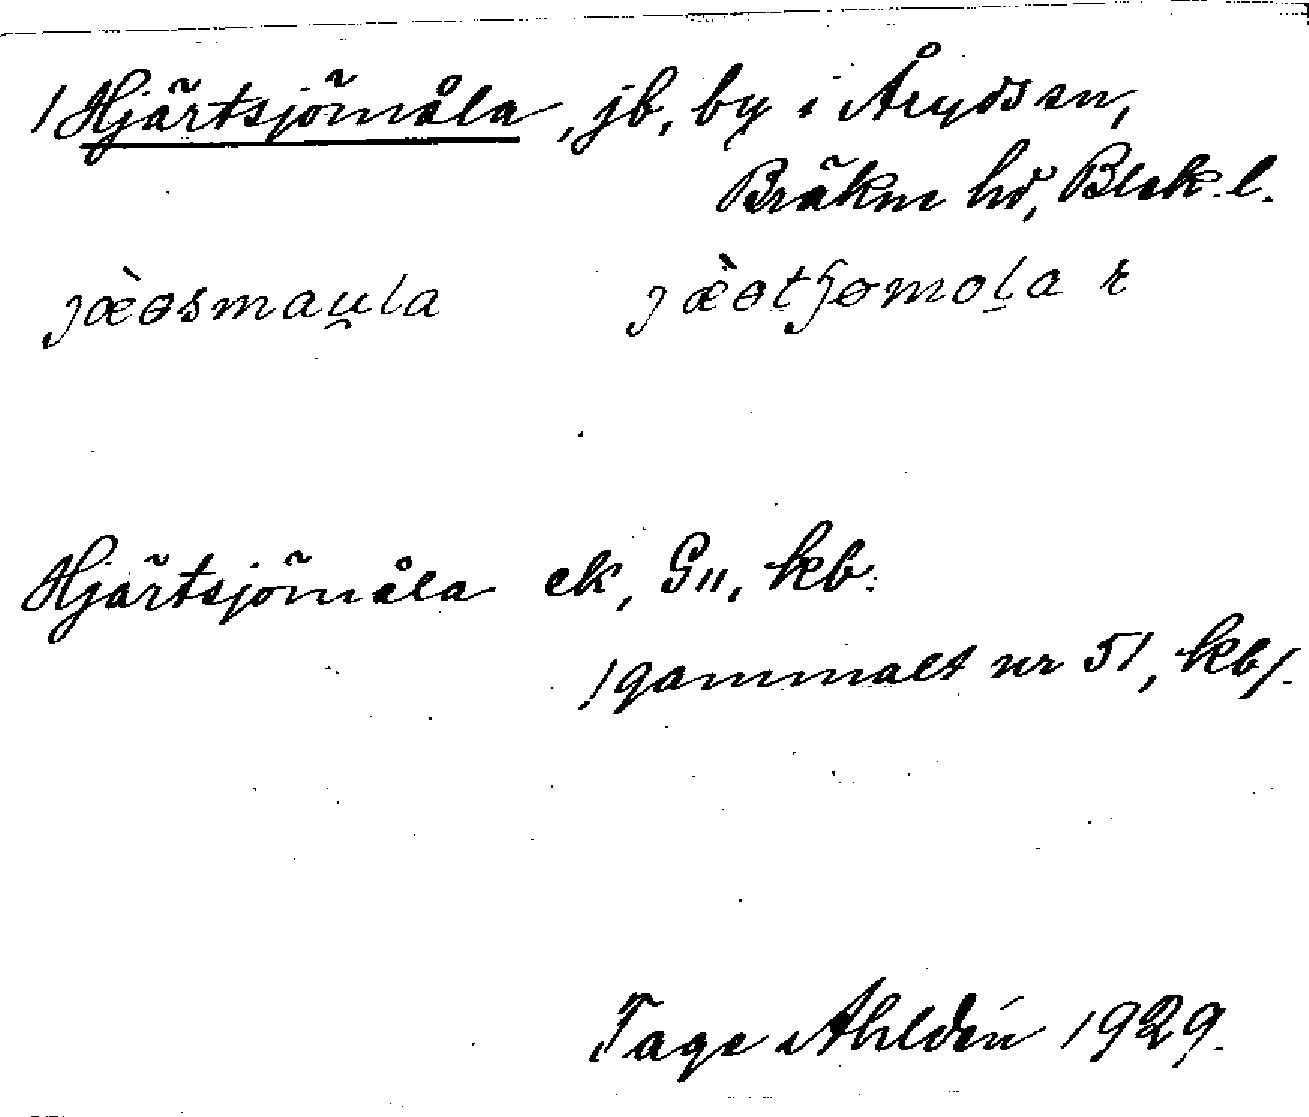 /Hjärtsjömåla, jb, by i Åryds sn,
Bräkne hd, Blek. l.
jæ̀ɵsmau̯la jæ̀ɵtʃɵmoḷa r
Hjärtsjömåla ek, Gll, kb.
/gammalt nr 51, kb/.
Tage Ahldén 1929.